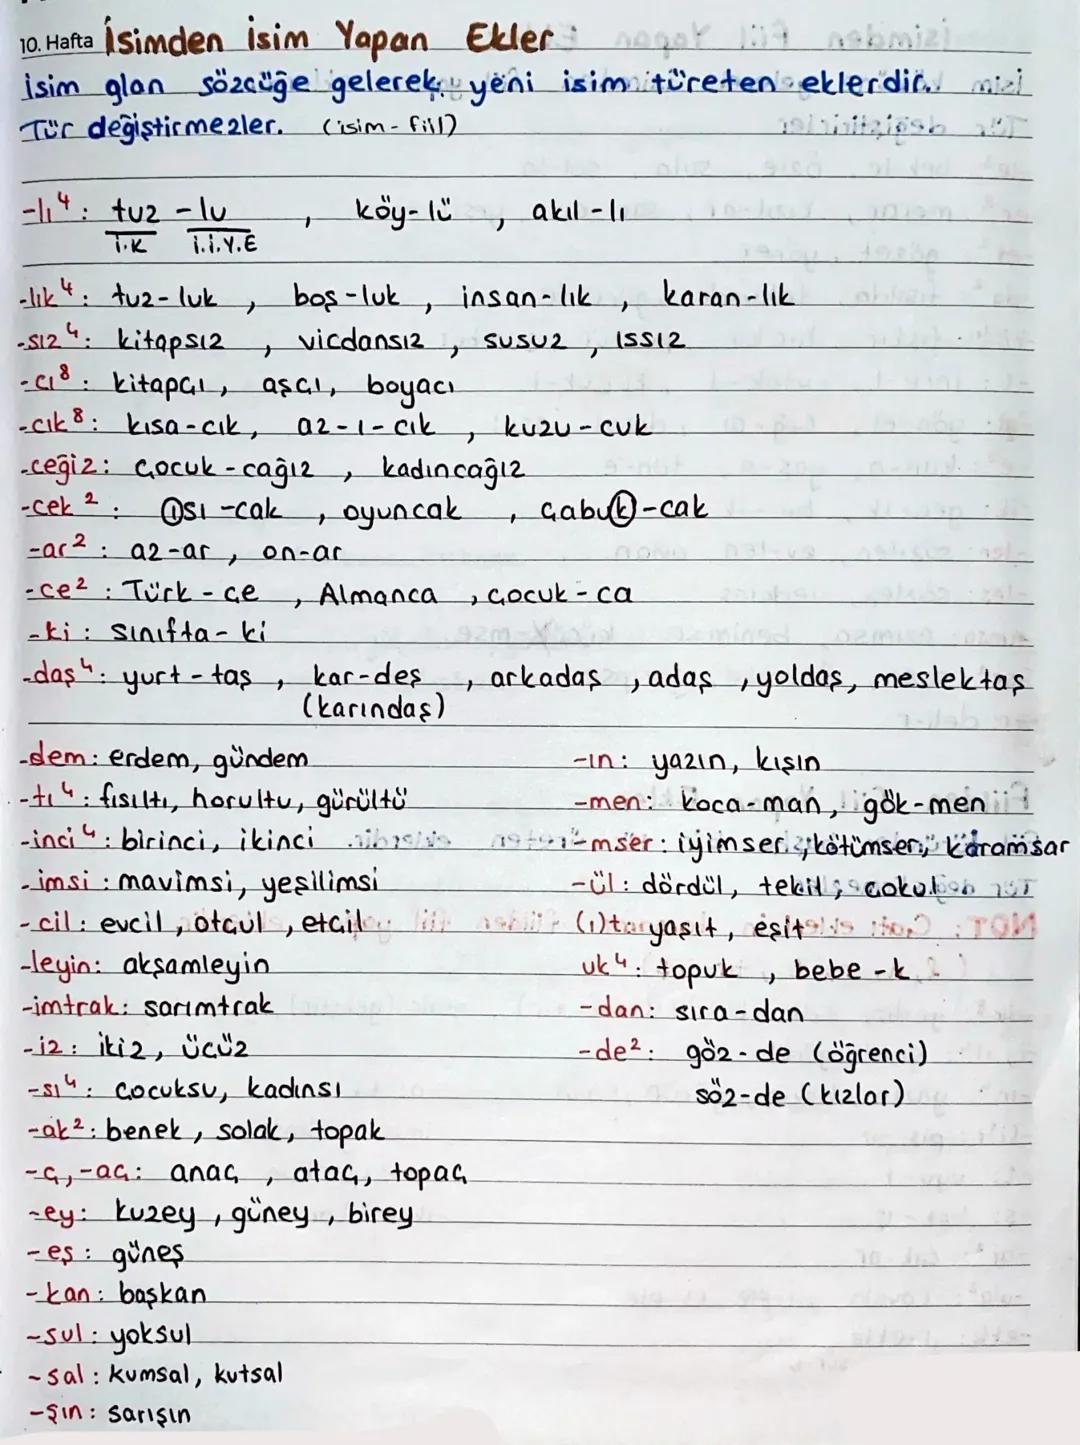 10. Hafta İsimden İsim Yapan Ekler
isim olan sözcüğe gelerek yeni isim türeten eklerdir.
Tür değiştirmezler. (isim-fiil)
-lı⁴: tuz-lu, köy-lü, akıl-lı
İ.K İ.İ.Y.E
-lık⁴: tuz-luk, boş-luk, insan-lık, karan-lık
-sız⁴: kitapsız, vicdansız, susuz, ıssız
-cı⁸: kitapçı, aşçı, boyacı
-cık⁸: kısa-cık, az-ı-cık, kuzu-cuk
-ceğiz: çocuk-cağız, kadıncağız
-cek²: ısı-cak, oyuncak, çabuk-cak
-ar²: az-ar, on-ar
-ce²: Türk-çe, Almanca, çocuk-ca
-ki: sınıfta-ki
-daş⁴: yurt-taş, kar-deş, arkadaş, adaş, yoldaş, meslektaş
(karındaş)
-dem: erdem, gündem
-tı⁴: fısıltı, horultu, gürültü
-inci⁴: birinci, ikinci
-imsi: mavimsi, yeşilimsi
-cil: evcil, otçul, etçil
-leyin: akşamleyin
-imtrak: sarımtrak
-iz: ikiz, üçüz
-sı⁴: çocuksu, kadınsı
-ak²: benek, solak, topak
-ç,-aç: anaç, ataç, topaç
-ey: kuzey, güney, birey
-eş: güneş
-kan: başkan
-sul: yoksul
-sal: kumsal, kutsal
-şın: sarışın
-ın: yazın, kışın
-men: koca-man, gök-men
-mser: iyimser, kötümser, karamsar
-ül: dördül, tekil, çoğul
(ı)t: yaşıt, eşit
uk⁴: topuk, bebe-k
-dan: sıra-dan
-de²: göz-de (öğrenci)
söz-de (kızlar)